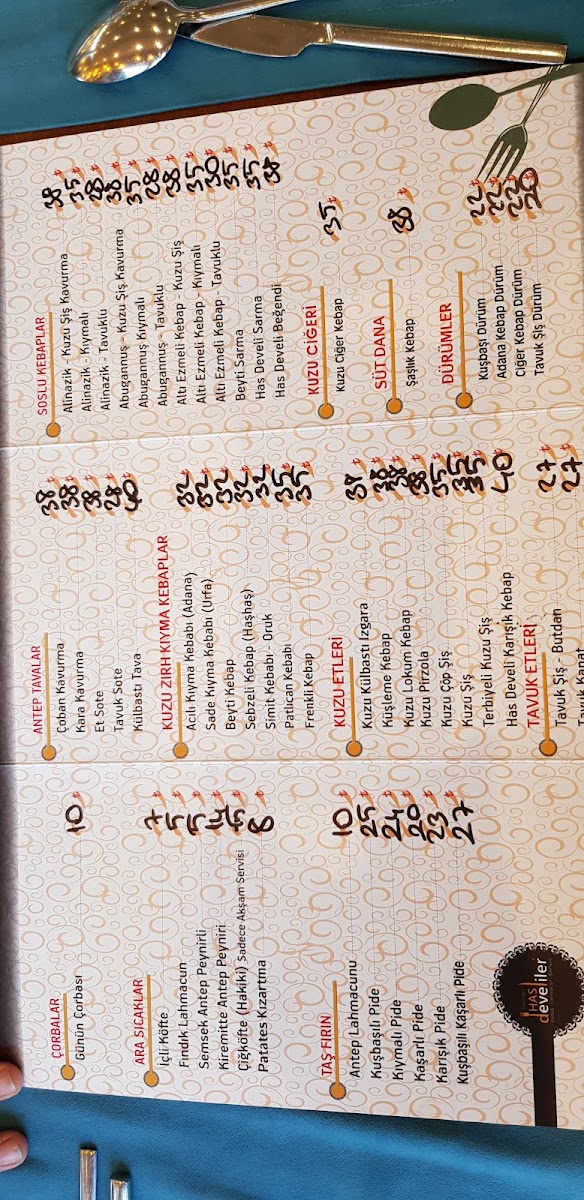 ÇORBALAR
Günün Çorbası 10
ARA SICAKLAR
İçli Köfte 7
Fındık Lahmacun 5
Semsek Antep Peynirli 5
Kiremitte Antep Peyniri 14
Çiğköfte (Hakiki) Sadece Akşam Servisi 15
Patates Kızartma 8
TAŞ FIRIN
Antep Lahmacunu 10
Kuşbaşılı Pide 25
Kıymalı Pide 24
Kaşarlı Pide 20
Karışık Pide 23
Kuşbaşılı Kaşarlı Pide 27
HAS
develiler
ANTEP TAVALAR
Çoban Kavurma 38
Kara Kavurma 38
Et Sote 38
Tavuk Sote 28
Külbastı Tava 40
KUZU ZIRH KIYMA KEBAPLAR
Acılı Kıyma Kebabı (Adana) 32
Sade Kıyma Kebabı (Urfa) 32
Beyti Kebap 32
Sebzeli Kebap (Haşhaş) 32
Simit Kebabı - Oruk 32
Patlıcan Kebabı 35
Frenkli Kebap 35
KUZU ETLERİ
Kuzu Külbastı Izgara 38
Küşleme Kebap 38
Kuzu Lokum Kebap 38
Kuzu Pirzola 38
Kuzu Çöp Şiş 35
Kuzu Şiş 35
Terbiyeli Kuzu Şiş 35
Has Develi Karışık Kebap 40
TAVUK ETLERİ
Tavuk Şiş - Butdan 27
Tavuk Kanat 27
SOSLU KEBAPLAR
Alinazik - Kuzu Şiş Kavurma 38
Alinazik - Kıymalı 35
Alinazik - Tavuklu 28
Abugannuş - Kuzu Şiş Kavurma 38
Abugannuş Kıymalı 35
Abugannuş - Tavuklu 28
Altı Ezmeli Kebap - Kuzu Şiş 38
Altı Ezmeli Kebap - Kıymalı 35
Altı Ezmeli Kebap - Tavuklu 30
Beyti Sarma 35
Has Develi Sarma 35
Has Develi Beğendi 38
KUZU CİĞERİ
Kuzu Ciğer Kebap 35
SÜT DANA
Şaşlık Kebap 38
DÜRÜMLER
Kuşbaşı Dürüm 22
Adana Kebap Dürüm 22
Ciğer Kebap Dürüm 22
Tavuk Şiş Dürüm 20